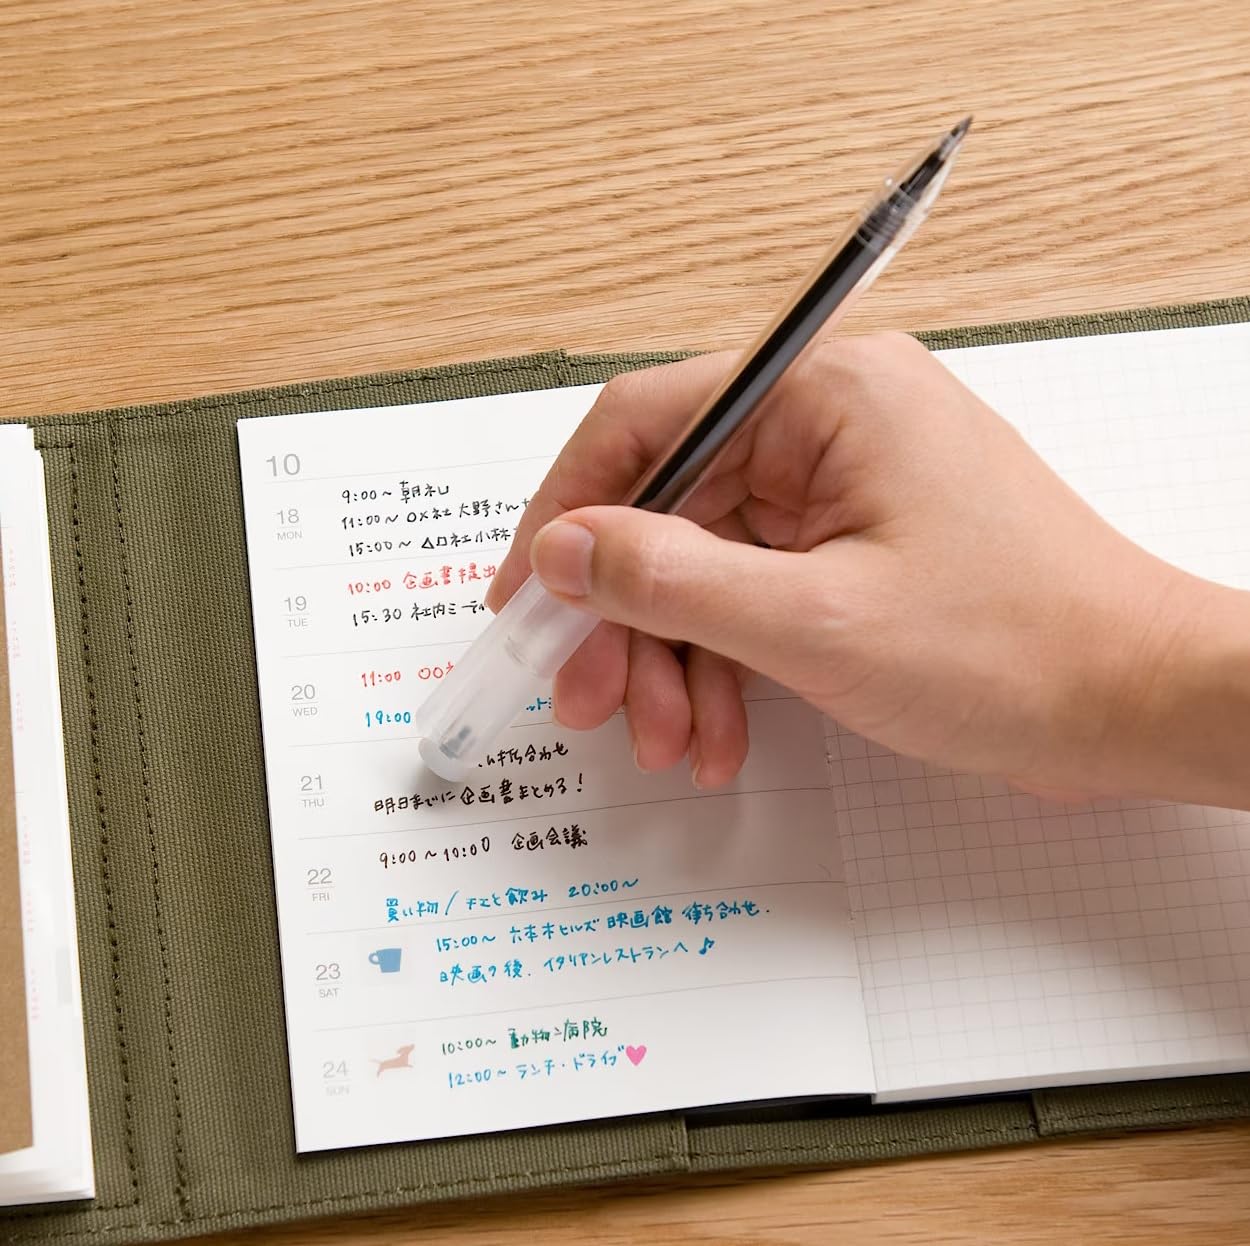 10
18
MON
9:00～ 朝礼
11:00～ ○×社 大野さん
15:00～ △□社 小林
19
TUE
10:00 企画書提出
15:30 社内ミーティ
20
WED
11:00 ○○
19:00
21
THU
打ち合わせ
明日までに企画書まとめる！
22
FRI
9:00～10:00 企画会議
買い物/チエと飲み 20:00～
23
SAT
15:00～ 六本木ヒルズ 映画館 待ち合わせ.
映画の後、イタリアンレストランへ♪
24
SUN
10:00～ 動物病院
12:00～ ランチ・ドライブ♥